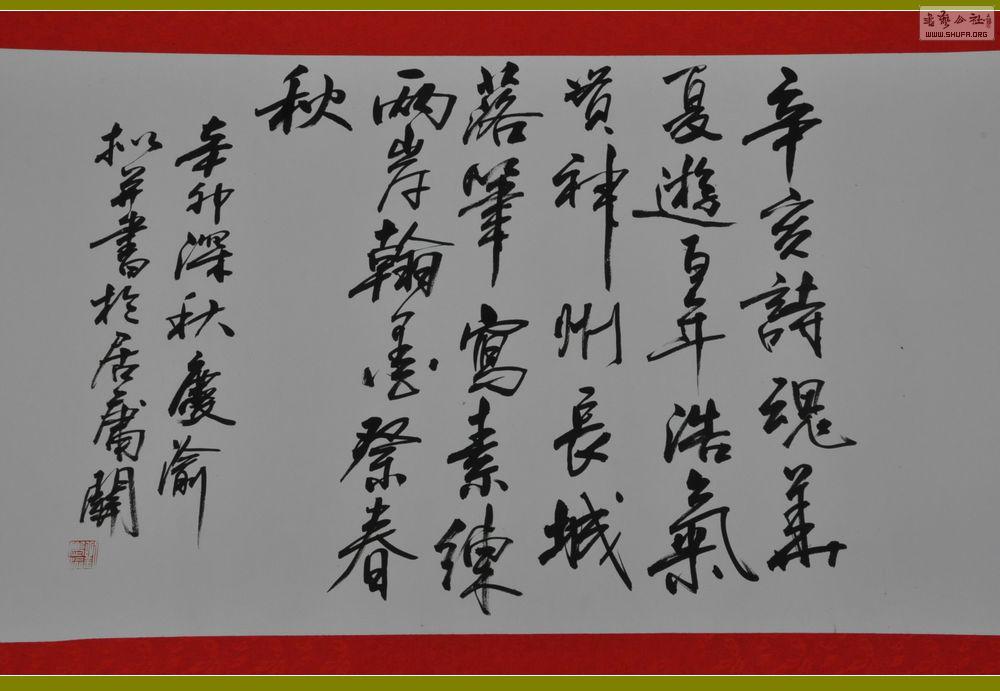 辛亥詩魂華
夏遊百年浩氣
貫神州長城
落筆寫素練
兩岸翰墨祭春
秋
辛卯深秋慶渝
松并書於居庸關
書藝公社
WWW.SHUFA.ORG